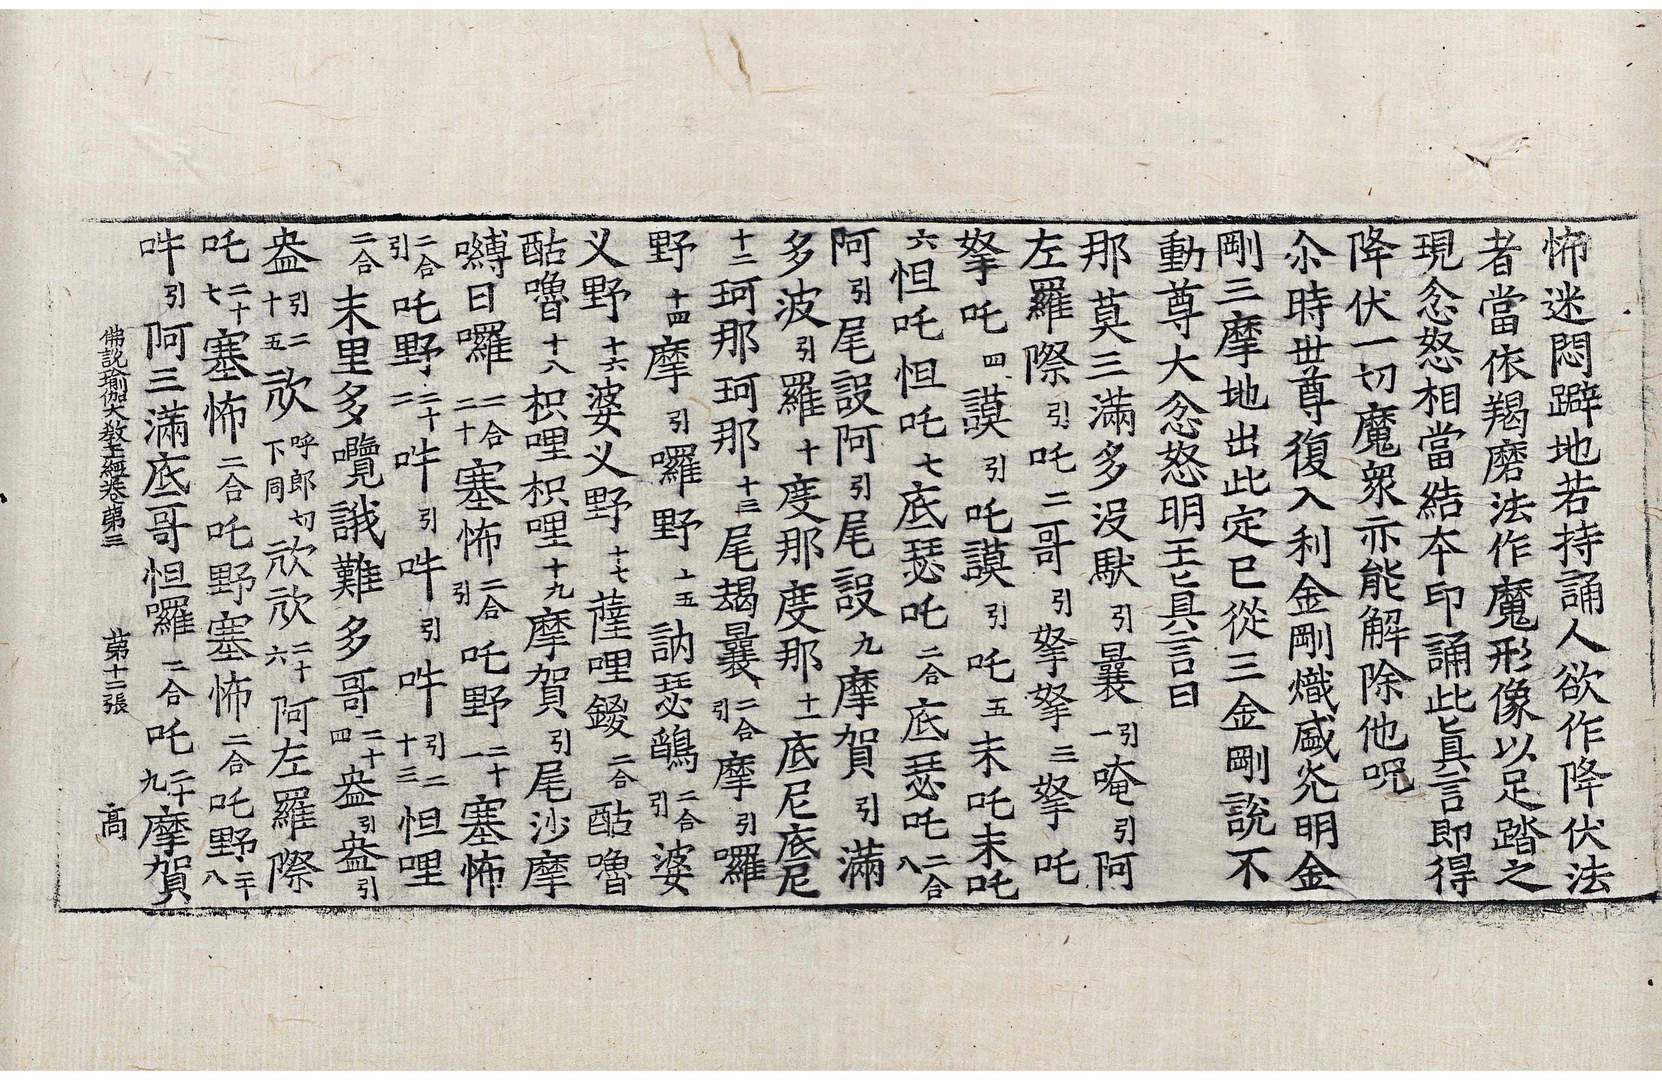 怖迷悶躃地若持誦人欲作降伏法
者當依羯磨法作魔形像以足踏之
現忿怒相當結本印誦此眞言即得
降伏一切魔衆亦能解除他呪
尒時世尊復入利金剛熾盛光明金
剛三摩地出此定已從三金剛說不
動尊大忿怒明王眞言曰
那莫三滿多沒馱引曩引一唵引阿
左羅際引吒二哥引拏拏三拏吒
拏吒四謨引吒謨引吒五末吒末吒
六怛吒怛吒七底瑟吒二合底瑟吒二合八
阿引尾設阿引尾設九摩賀引滿
多波引羅十度那度那十一底尼底尼
十二珂那珂那十三尾朅曩二合引摩引囉
野十四摩引囉野十五訥瑟鵮二合引婆
义野十六婆义野十七薩哩鍐二合酤嚕
酤嚕十八枳哩枳哩十九摩賀引尾沙摩
嚩日囉二合二十塞怖二合引吒野二十一塞怖
二合引吒野二十二吽引吽引吽引二十三怛哩
二合末里多囕誐難多哥二十四盎引盎引
盎引二十五欣呼郎切下同欣欣二十六阿左羅際
吒二十七塞怖二合吒野塞怖二合吒野二十八
吽引阿三滿底哥怛囉二合吒二十九摩賀
佛說瑜伽大敎王經卷第三　第十二張　高